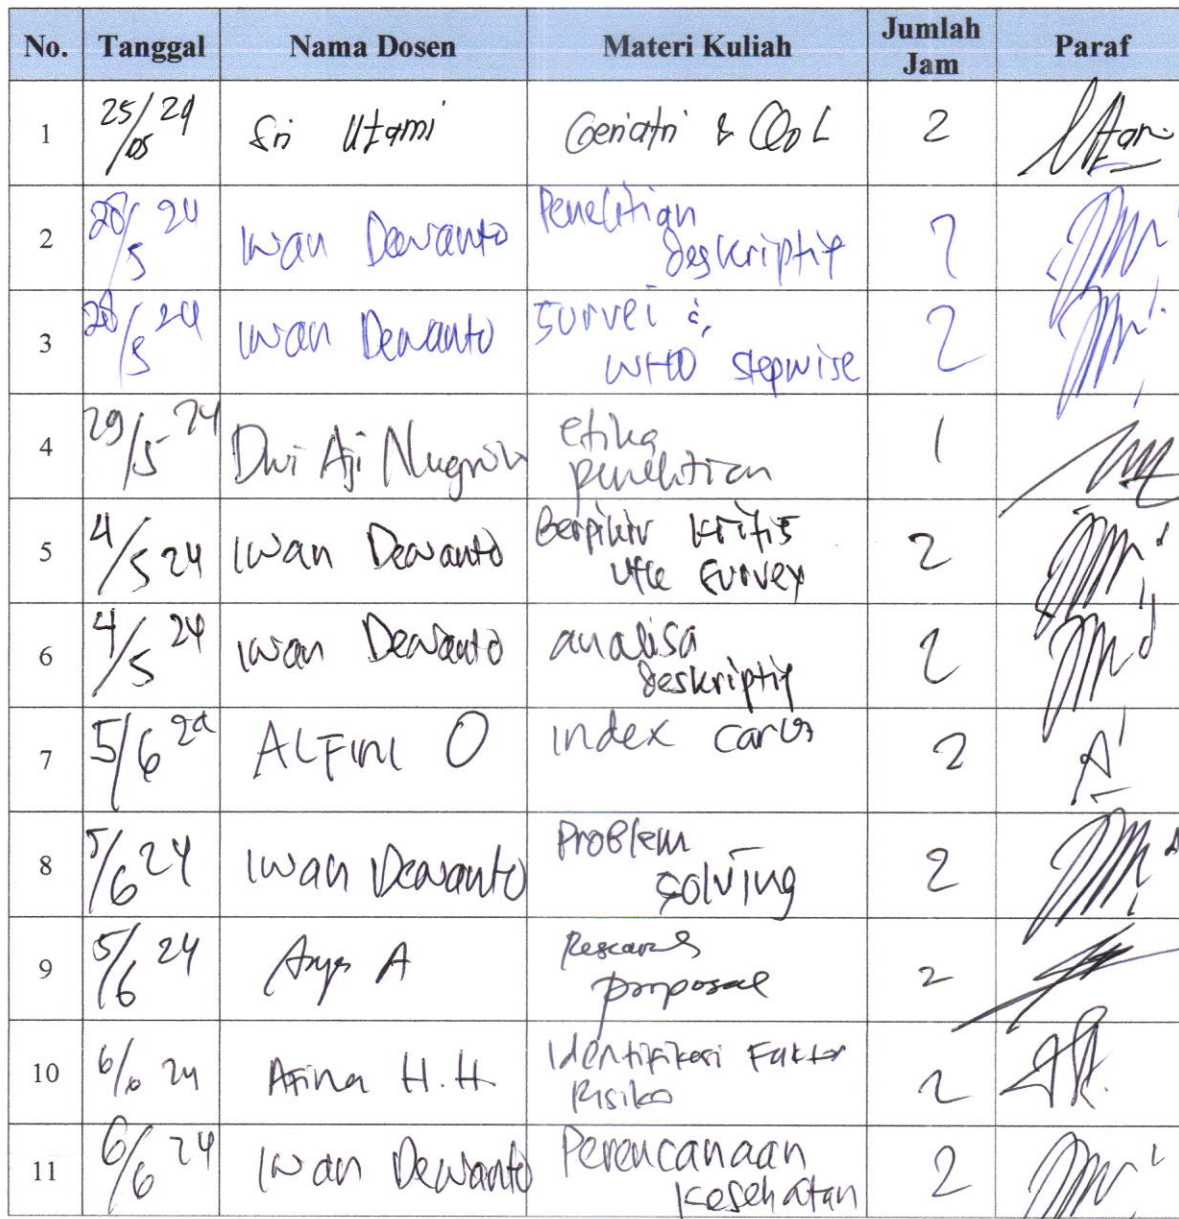 No. Tanggal Nama Dosen Materi Kuliah Jumlah Jam Paraf
1 25/05 24 Sri Utami Geriatri & QoL 2
2 28/5 24 Iwan Dewanto Penelitian deskriptif 2
3 28/5 24 Iwan Dewanto Survei & WHO stepwise 2
4 29/5 24 Dwi Aji Nugroho etika penelitian 1
5 4/5 24 Iwan Dewanto Berpikir kritis survey 2
6 4/5 24 Iwan Dewanto analisa deskriptif 2
7 5/6 24 ALFINI O index caries 2
8 5/6 24 Iwan Dewanto Problem solving 2
9 5/6 24 Arya A Research proposal 2
10 6/6 24 Afina H.H Identifikasi Faktor Risiko 2
11 6/6 24 Iwan Dewanto Perencanaan Kesehatan 2